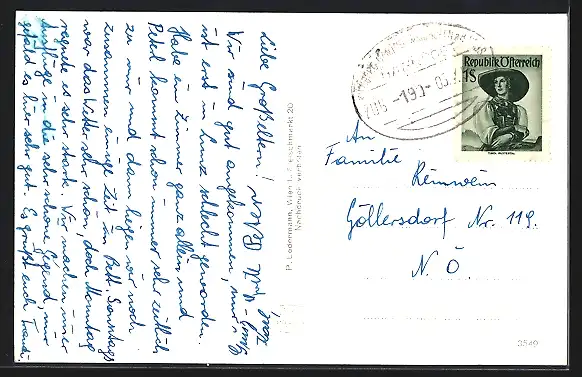 Liebe Großeltern!
Wir sind gut angekommen, nur
ist erst in Lunz schlecht geworden.
Habe ein Zimmer ganz allein und
Petzl kommt schon immer sehr zeitlich
zu mir und dann liegen wir noch
zusammen einige Zeit im Bett. Sonntags
war das Wetter sehr schön, doch Montag
regnete es sehr stark. Wir machen immer
Ausflüge in die sehr schöne Gegend, mir
gefällt es hier sehr gut. Es grüßt euch Traudi
P. Ledermann, Wien I., Fleischmarkt 20
Nachdruck verboten
Republik Österreich
1S
TIROL, PUSTERTAL
An
Familie
Reinwein
Göllersdorf Nr. 119.
N.Ö
3549